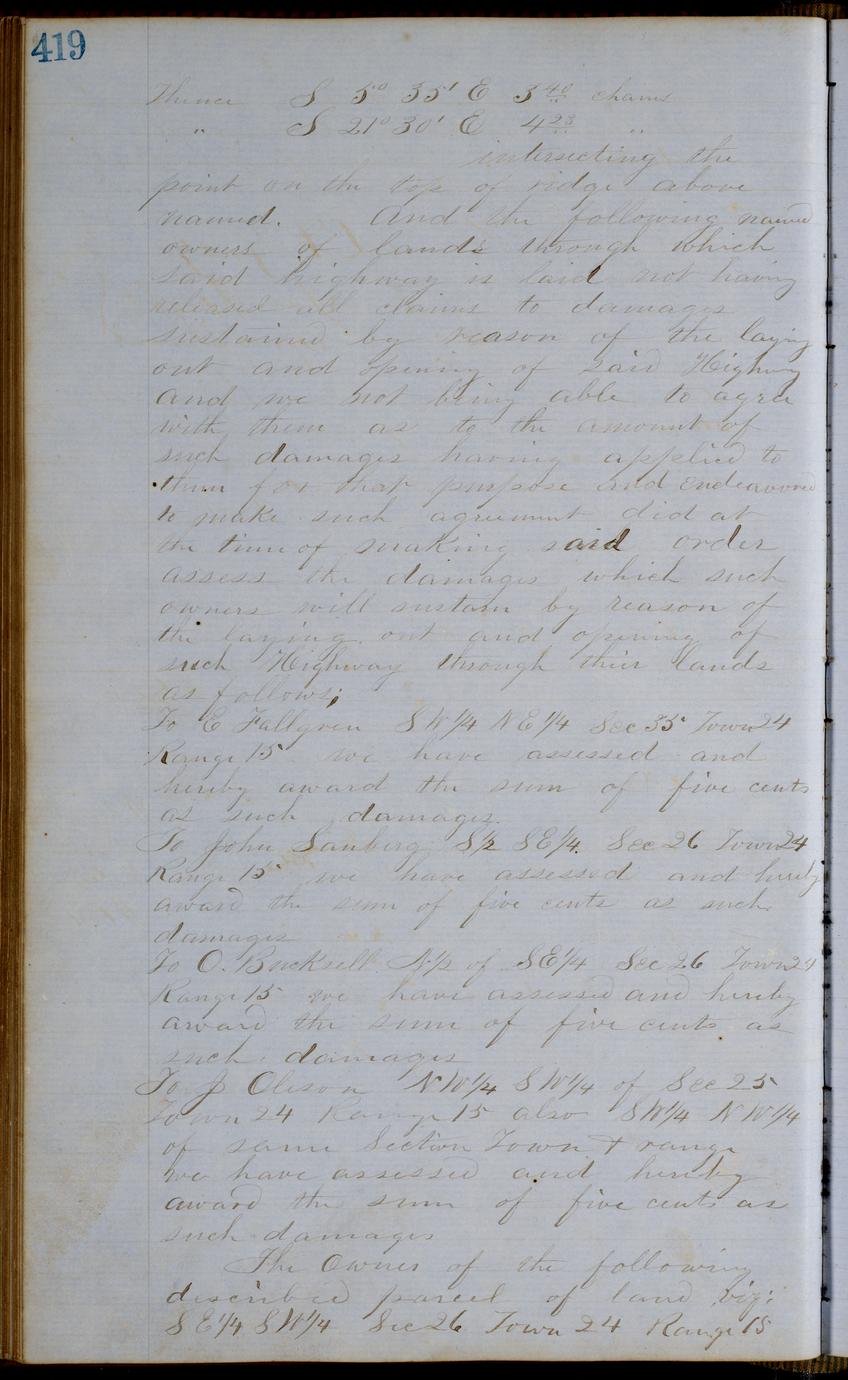 419
Thence S 5° 35' E 3 40 chains
" S 21° 30' E 4 23 "
intersecting the
point on the top of ridge above
named. And the following named
owners of lands through which
said highway is laid not having
released all claims to damages
sustained by reason of the laying
out and opening of said Highway
and we not being able to agree
with them as to the amount of
such damages having applied to
them for that purpose and endeavored
to make such agreement did at
the time of making said order
assess the damages which such
owners will sustain by reason of
the laying out and opening of
such Highway through their lands
as follows;
To E Fallgren SW1/4 NE1/4 Sec 35 Town 24
Range 15 we have assessed and
hereby award the sum of five cents
as such damages.
To John Sanberg S1/2 SE1/4. Sec 26 Town 24
Range 15 we have assessed and hereby
award the sum of five cents as such
damages
To O. Bucksell N1/2 of SE1/4 Sec 26 Town 24
Range 15 we have assessed and hereby
award the sum of five cents as
such damages
To J Oleson NW1/4 SW1/4 of Sec 25
Town 24 Range 15 also SW1/4 NW1/4
of same Section Town & range
we have assessed and hereby
award the sum of five cents as
such damages
The Owner of the following
described parcel of land viz:
SE1/4 SW1/4 Sec 26 Town 24 Range 15